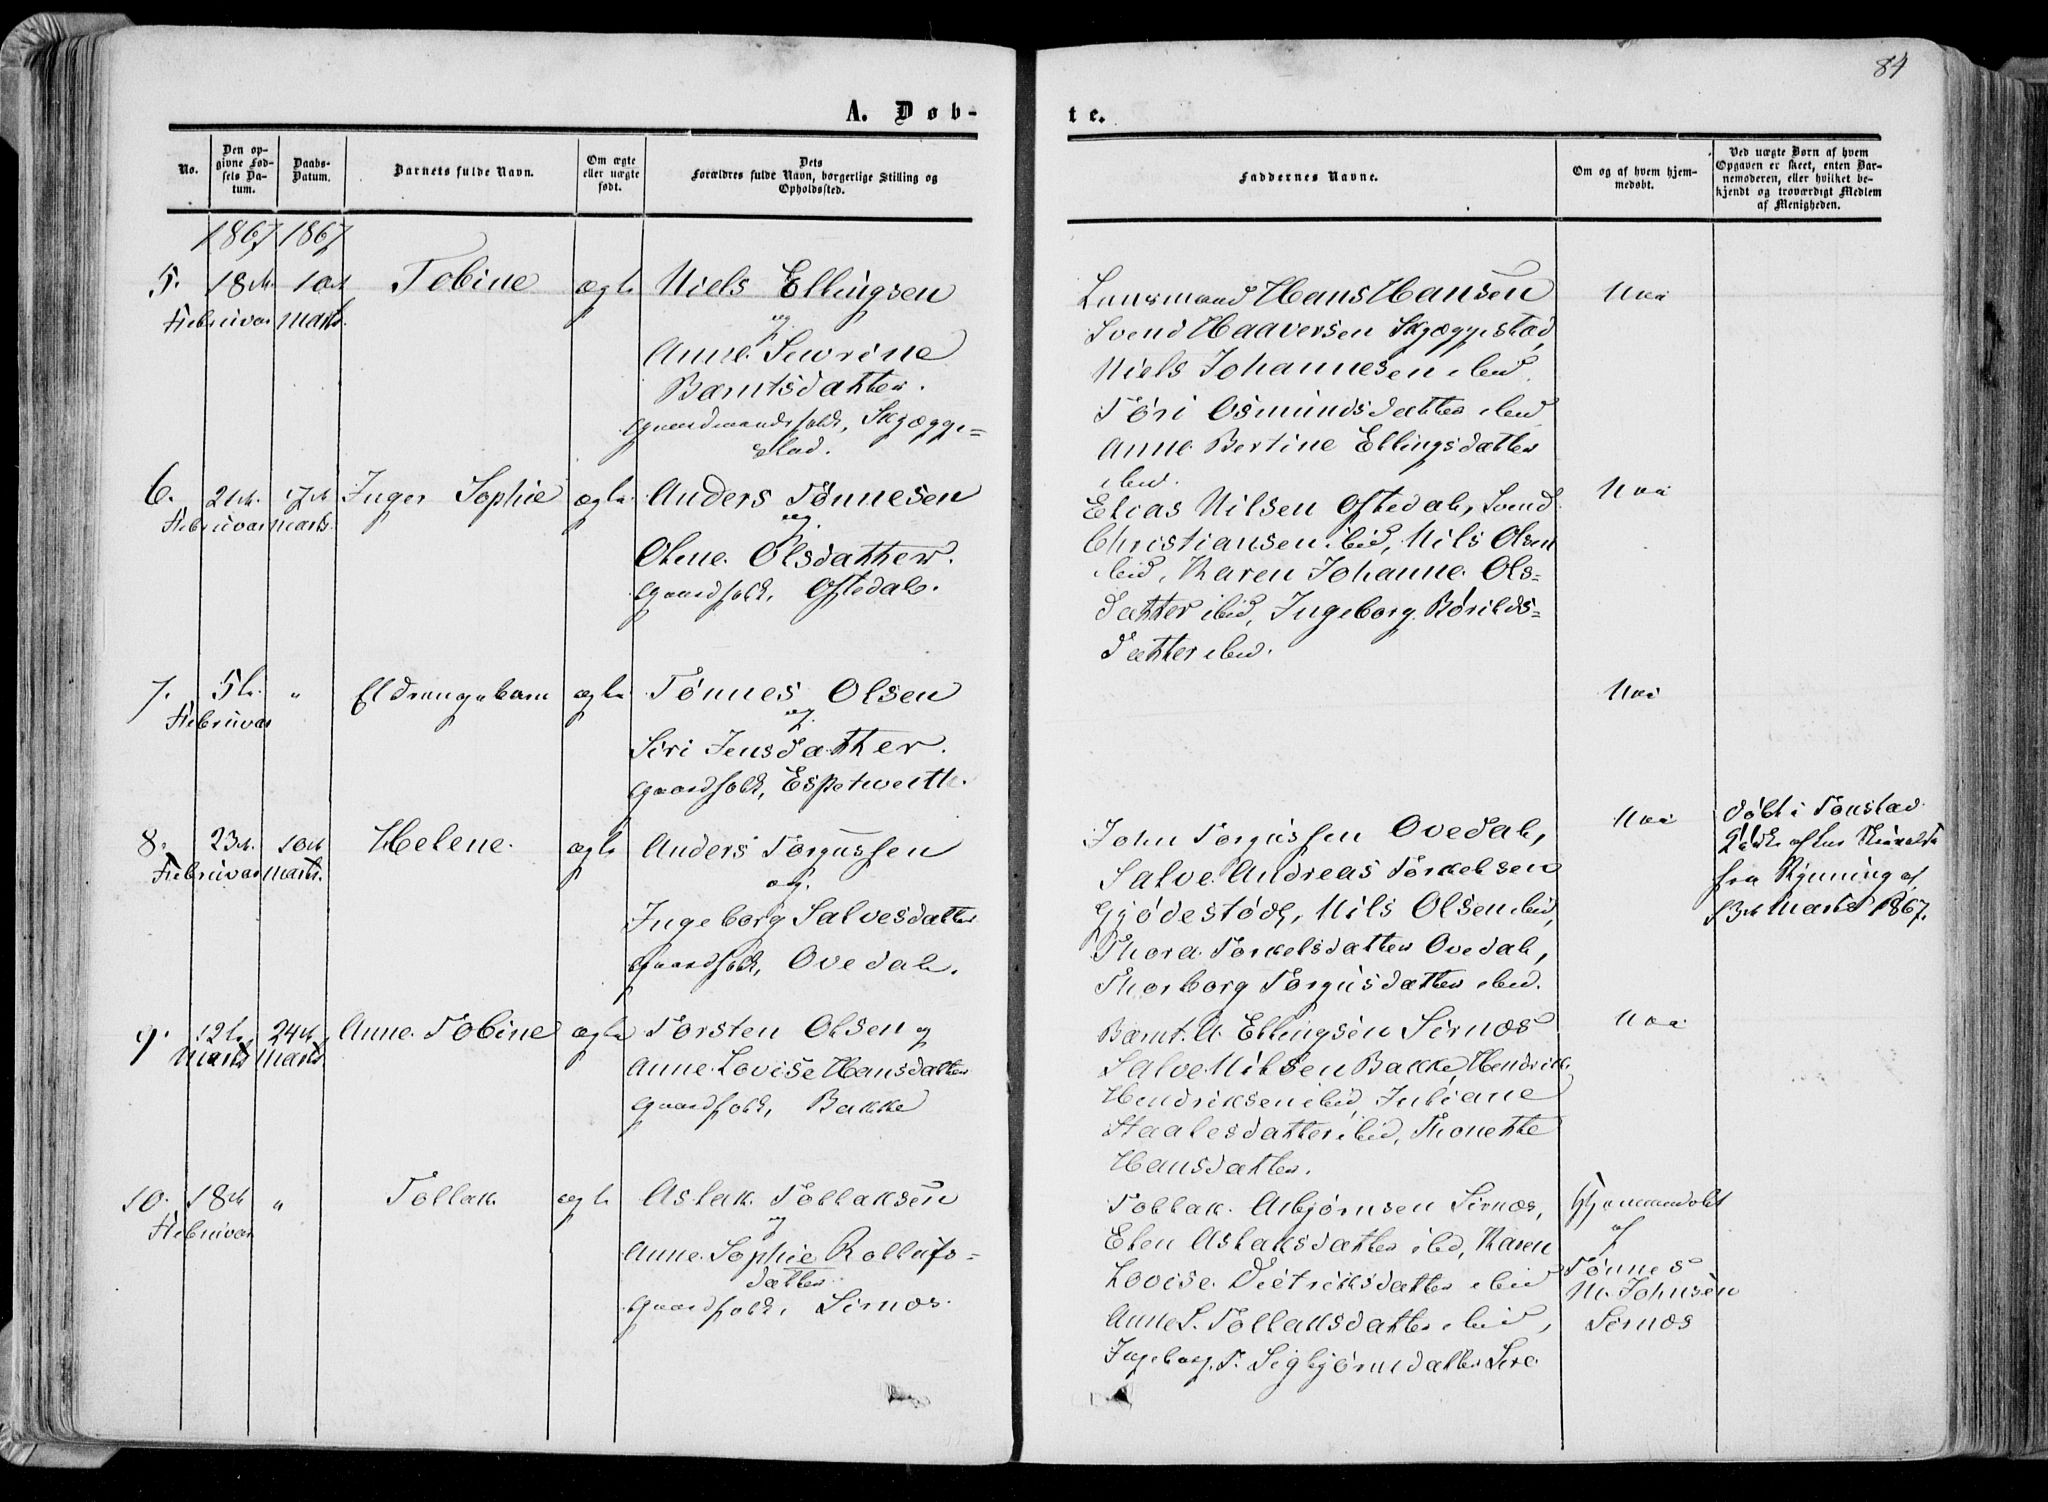 84
A. Døb-
te.
No.
Den op-
givne Fød-
sels Da-
tum.
Daabs-
Datum.
Barnets fulde Navn.
Om ægte
eller uægte
født.
Dets
Forældres fulde Navn, borgerlige Stilling og
Opholdssted.
Faddernes Navne.
Om og af hvem hjem-
medøbt.
Ved uægte Børn af hvem
Opgaven er skeet, enten Bar-
nemoderen, eller hvilket be-
kjendt og troværdigt Medlem
af Menigheden.
1867 1867
5. 18de 10de Tobine ægte Niels Ellingsen
Februar Marts.
og
Anne Sevrine
Berntsdatter.
Gaardmandsfolk, Skjægge=
stad.
Lensmand Hans Hansen
Svend Haaversen Skjæggestad,
Niels Johannesen ibid.
Tøri Osmundsdatter ibid
Anne Bertine Ellingsdatter
ibid.
Nei
6. 21de 17de Inger Sophie ægte Anders Tønnesen
Februar Marts.
og
Olene Olsdatter.
Gaardfolk, Oftedal.
Elias Nilsen Oftedal, Svend
Christiansen ibid, Nils Olsen
ibid, Karen Johanne Ols=
datter ibid, Ingeborg Børilds=
datter ibid.
Nei
7. 5te " Et drengebarn ægte Tønnes Olsen
Februar
og
Siri Jensdatter.
Gaardfolk, Espetveit.
Nei
8. 23de 10de Helene. ægte Anders Torgussen
Februar Marts.
og
Ingeborg Salvesdatter
Gaardfolk, Ovedal.
John Torgussen Ovedal,
Salve Andreas Torkelsen
Gjødestøl, Nils Olsen ibid,
Thora Torkelsdatter Ovedal,
Thorborg Torgusdatter ibid.
Nei
Døbt i Tonstad
efter
fra af
13de Marts 1867.
9. 12te 24de Anne Tobine ægte Torsten Olsen og
Marts Marts
Anne Lovise Hansdatter
Gaardfolk, Bakke
Bernt A. Ellingsen Sirnæs
Salve Nilsen Bakke Hendrik
Hendriksen ibid, Juliane
Staalesdatter ibid, Thonette
Hansdatter.
Nei
10. 18de " Tollak ægte Aslak Tollaksen
Februar
og
Anne Sophie Rollufs=
datter
Gaardfolk, Sirnæs.
Tollak Asbjørnsen Sirnæs,
Elen Aslaksdatter ibid, Karen
Lovise Dietriksdatter ibid
Anne S. Tollaksdatter ibid,
Ingeborg T. Sigbjørnsdatter Sire
Hjemmedøbt
af
Tønnes
M. Johnsen
Sirnæs